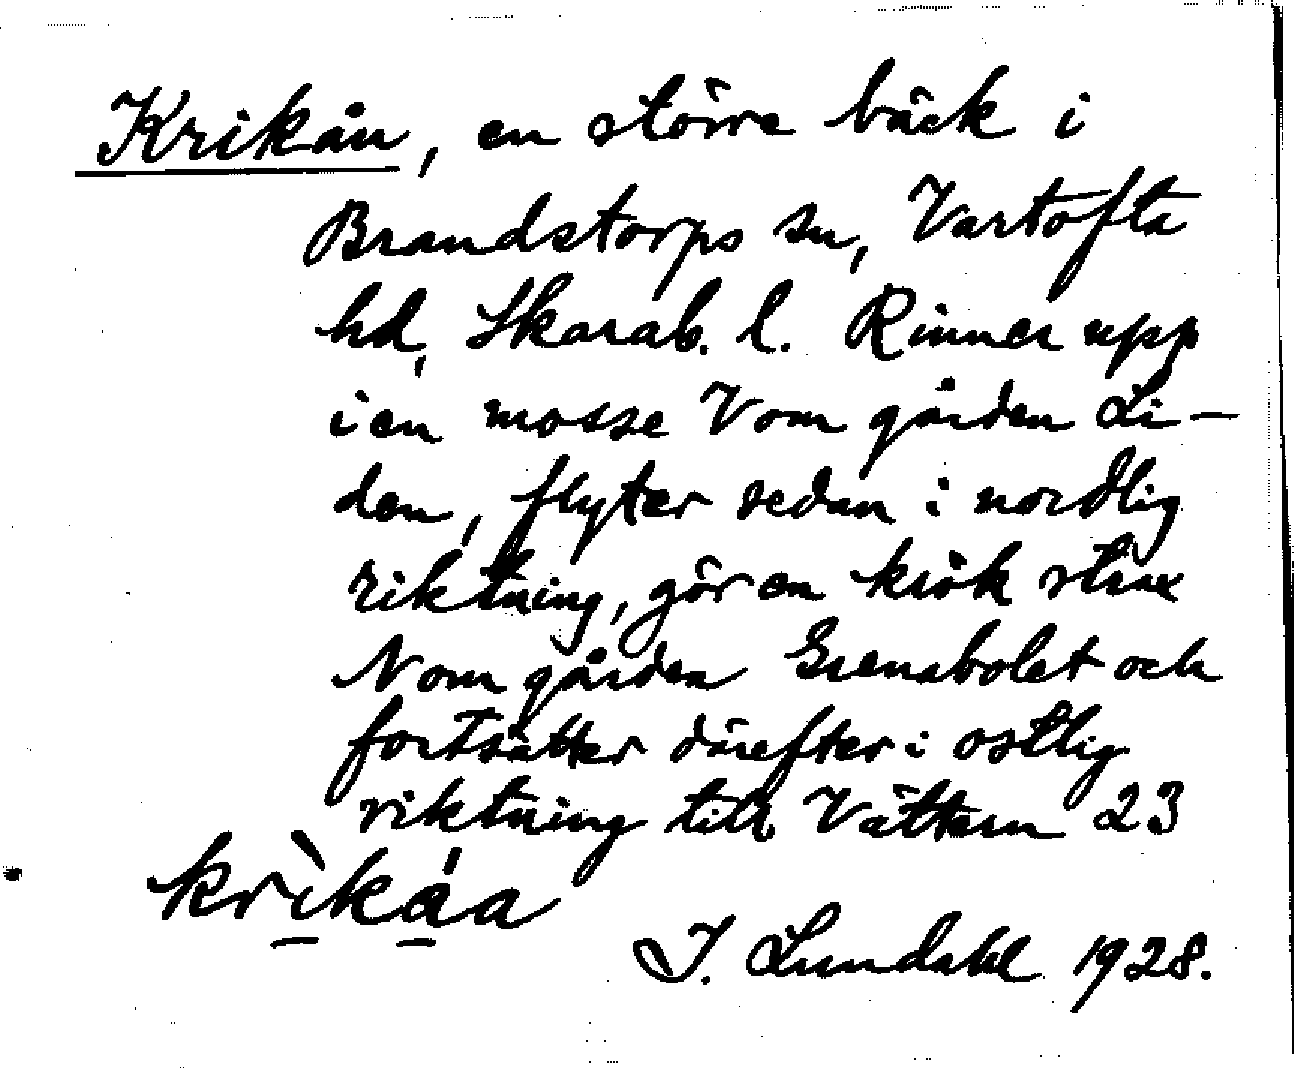 Krikån, en större bäck i
Brandstorps sn, Vartofta
hd, Skarab. l. Rinner upp
i en mosse V om gården Li-
den, flyter sedan i nordlig
riktning, gör en krök strax
N om gården Grenabolet och
fortsätter därefter i ostlig
riktning till Vättern 23
krìkáa
I. Lundahl 1928.